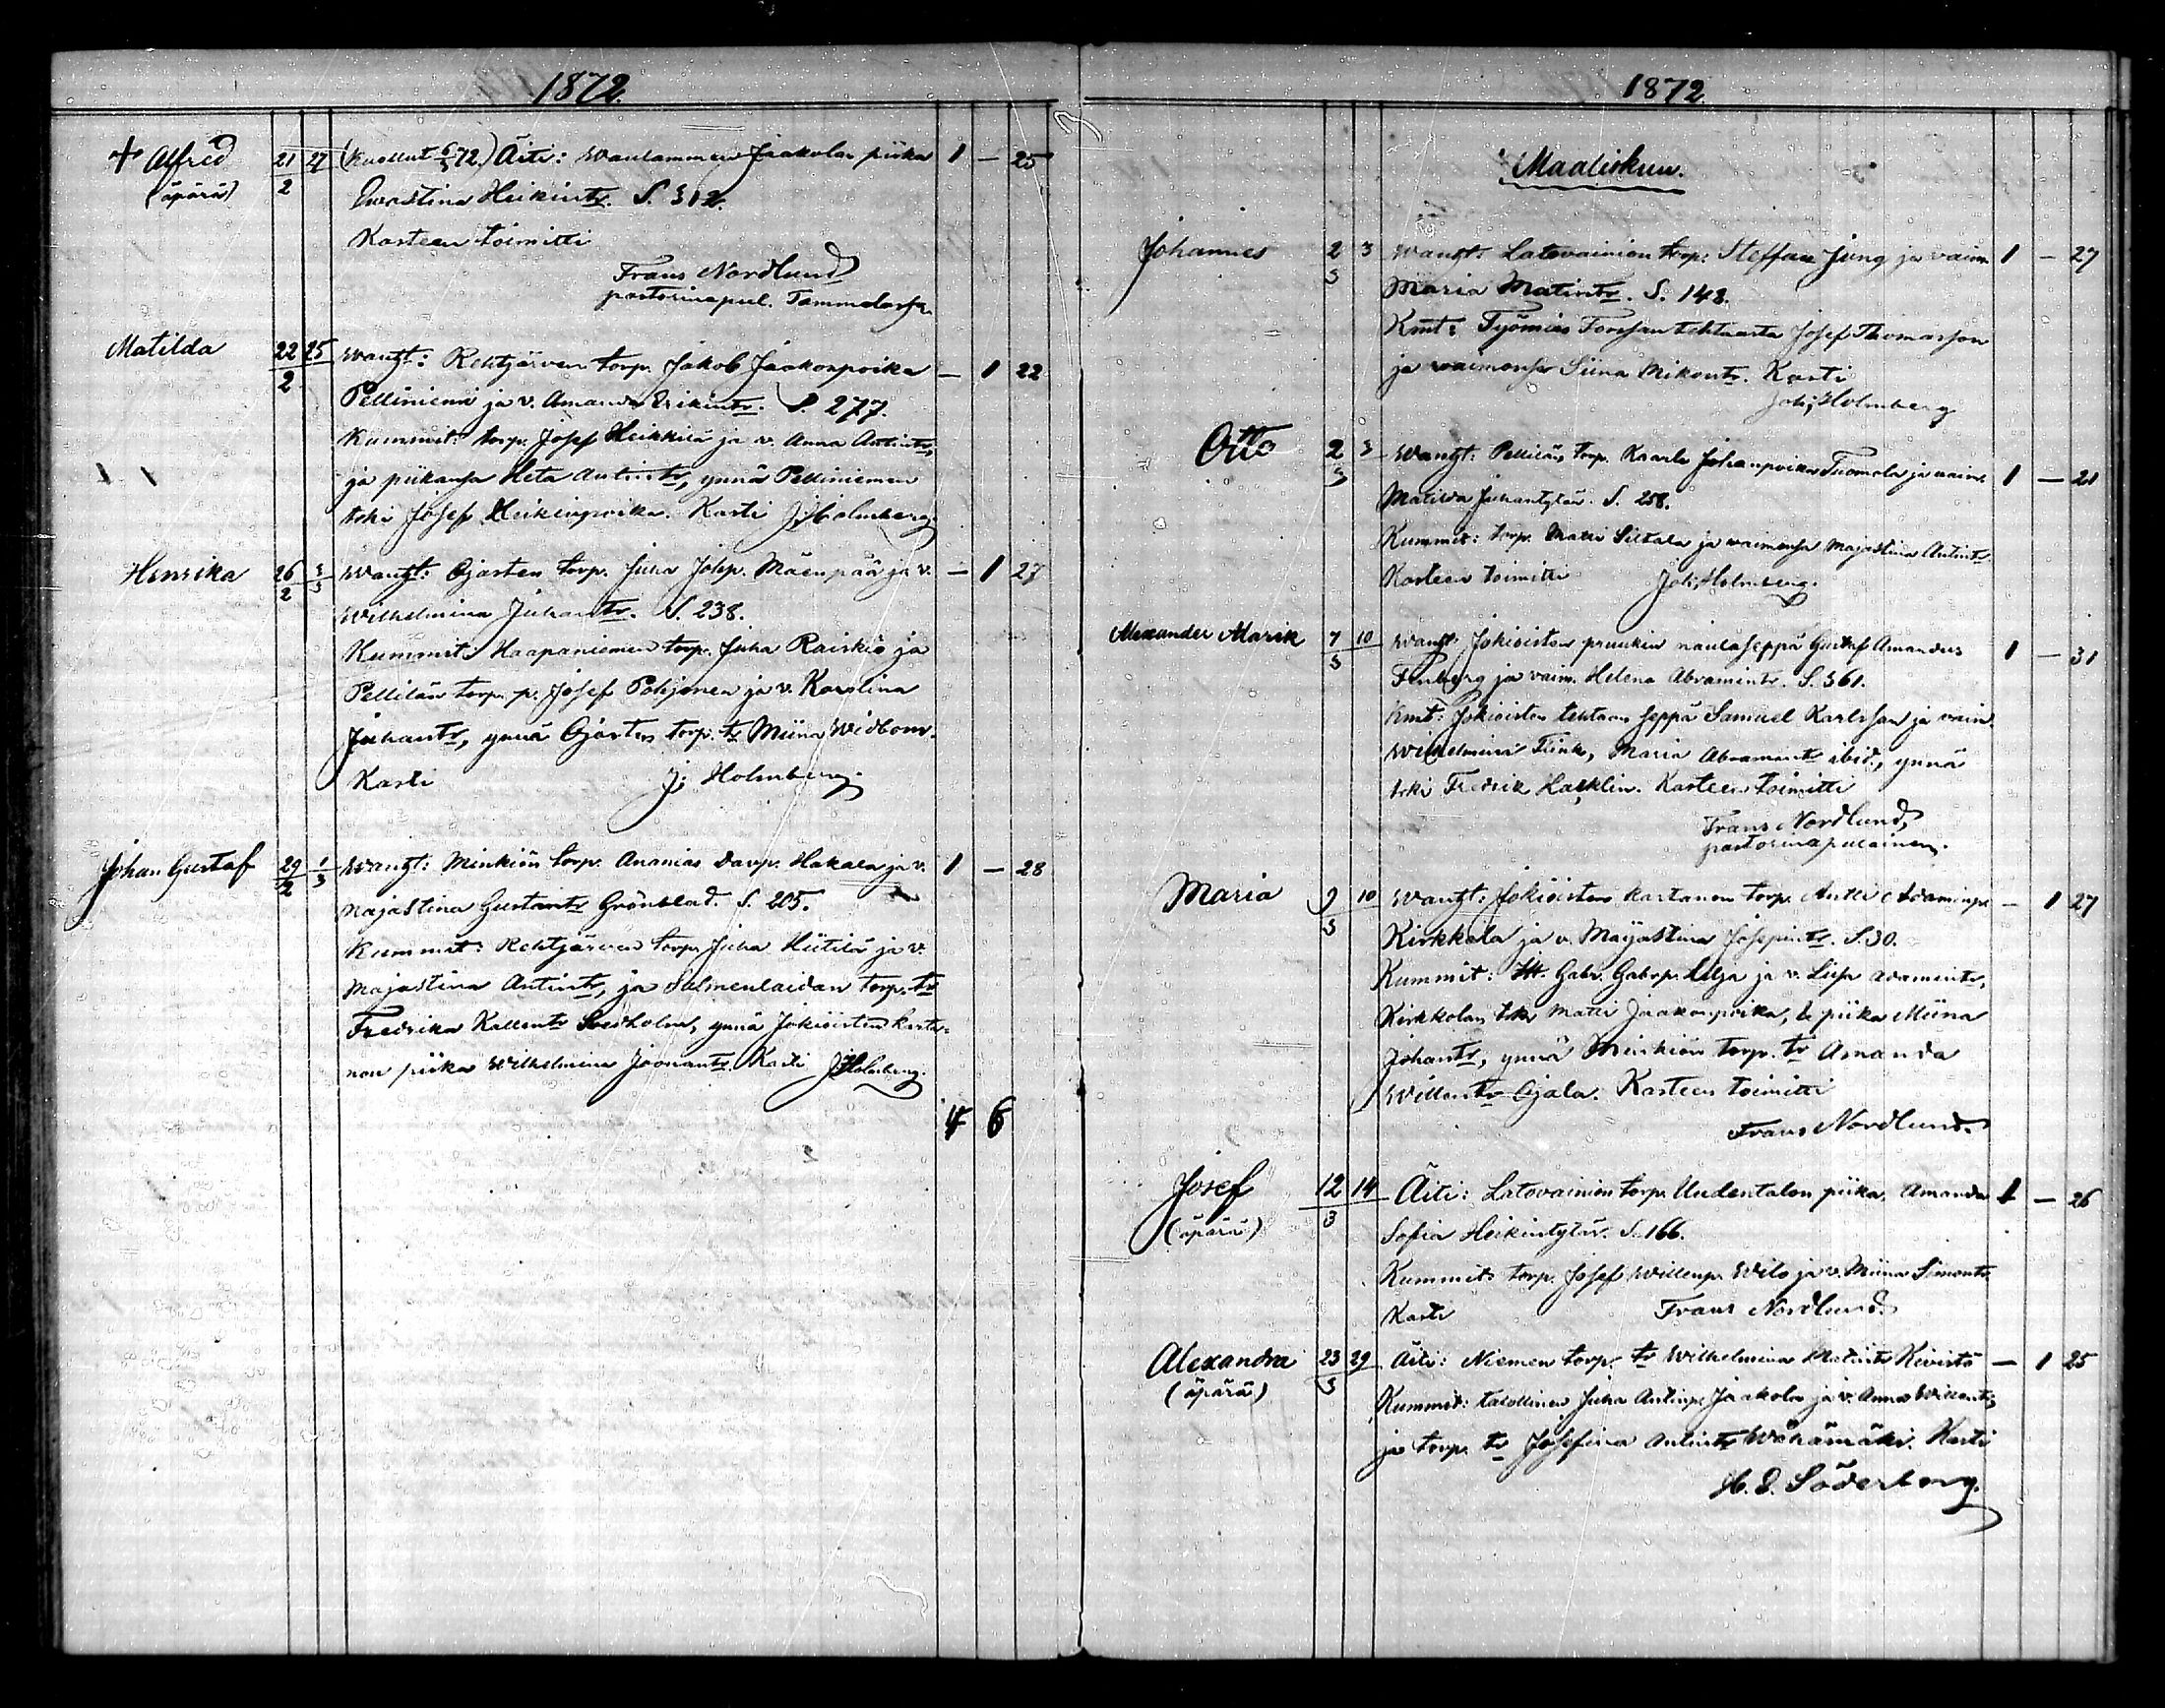 1872.
+ Alfred 21/2 27 (Kuollut 6/3 72.) Äiti: Waulammin Jaakolan piika 1 — 25
(äpärä) Eerstina Heikintr. S. 312.
Kasteen toimitti
Frans Nordlund
pastorinapul. Tammelassa.
Matilda 22/2 25 Wanht: Rehtjärven torp. Jakob Jaakonpoika — 1 22
Pelliniemi ja v. Amanda Erikintr. S. 277.
Kummit: torp. Josef Heikkilä ja v. Anna Antintr,
ja piikansa Heta Antintr, ynnä Pelliniemen
Josef Heikinpoika. Kasti J. Holmberg
Henrika 26/2 3/3 Wanht: Ojasten torp. Juha Johp. Mäenpää ja v. — 1 27
Wilhelmina Juhantr. S. 238.
Kummit: Haapaniemen torp. Juha Raiskio ja
Pellilän torp. p. Josef Pohjonen ja v. Karolina
Juhantr, ynnä Ojasten torp. tr Miina Widbom.
Kasti J. Holmberg.
Johan Gustaf 29/2 1/3 Wanht: Minkiön torp. Ananias Davp. Hakala ja v. 1 — 28
Majastina Gustavtr Grönblad. S. 205.
Kummit: Rehtjärven torp. Juha Hiitilä ja v.
Majastina Antintr, ja Salmenlaidan torp. tr
Fredrika Kallentr, ynnä Jokioisten karta-
non piika Wilhelmina Joonantr. Kasti J. Holmberg.
4 6
1872.
Maaliskun.
Johannes 2/3 3 Wanht: Latovainion torp. Steffan Jung ja vaim. 1 — 27
Maria Matintr. S. 148.
Kmt: Työmies Forssan tehtaasta Josef Thomasson
ja waimonsa Siina Mikontr. Kasti
Joh. Holmberg
Otto 2/3 3 Wanht: Pellilän torp. Kaarle Johanpoika Tuomola ja vaim. 1 — 21
Matilda Juhantytär. S. 258.
Kummit: torp. Matti Siltala ja waimonsa Majastina Antintr.
Kasteen toimitti Joh. Holmberg.
Alexander Marik 7/3 10 Wanht: Jokioisten pruukin naulaseppä Gustaf Amandus 1 — 31
Finberg ja vaim. Helena Abramintr. S. 361.
Kmt: Jokioisten tehtaan seppä Samuel Karlsson ja vaim.
Wilhelmina Fink, Maria Abramintr ibid, ynnä
Fredrik Hacklin. Kasteen toimitti
Frans Nordlund,
pastorinapulainen.
Maria 9/3 10 Wanht: Jokioisten kartanon torp. Antti Adaminp. — 1 27
Kirkkala ja v. Majastina Josepintr. S. 30.
Kummit: Itt. Gabr. Gabrp. Lilja ja v. Liisa Adamintr,
Kirkkolan Matti Jaakonpoika, & piika Miina
Johantr, ynnä Minkiön torp. tr Amanda
Willentr Ojala. Kasteen toimitti
Frans Nordlund.
Josef 12/3 14 Äiti: Latovainion torp. Uudentalon piika Amanda 1 — 26
(äpärä) Sofia Heikintytär. S. 166.
Kummit: torp. Josef Willenp. Wilo ja v. Miina Simontr.
Kasti Frans Nordlund.
Alexandra 23/3 29 Äiti: Niemen torp. tr Wilhelmina Matintr Kivistö — 1 25
(äpärä) Kummit: talollinen Juha Antinp. Jaakola ja v. Anna Willentr,
ja torp. tr Josefina Antintr Wähämäki. Kasti
H. E. Söderborg.